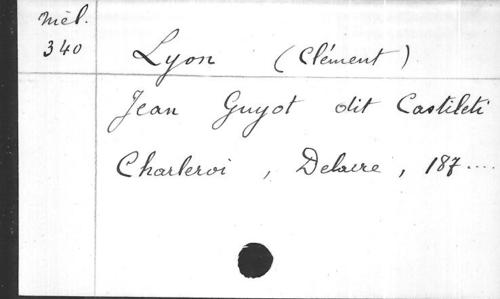 Mél.
340
Lyon (Clément)
Jean Guyot dit Castileti
Charleroi, Delacre, 187....